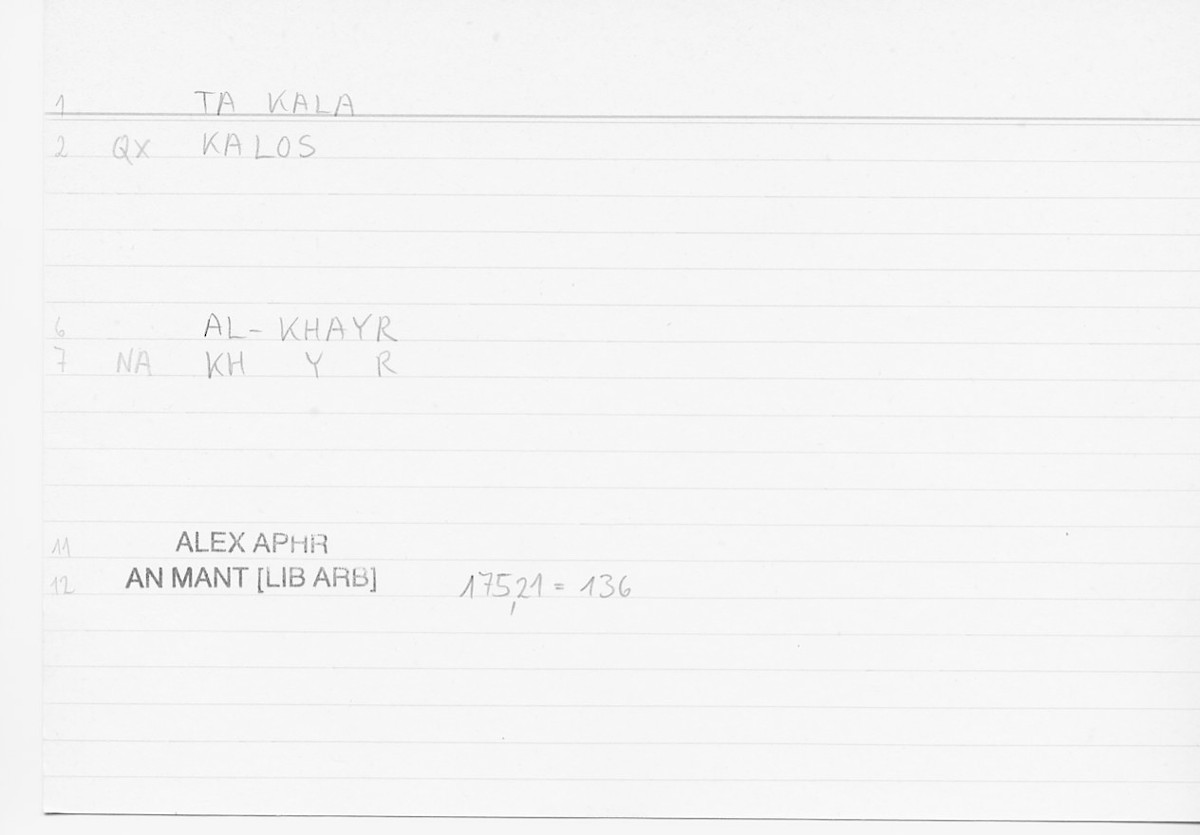 1 TA KALA
2 QX KALOS
6 AL-KHAYR
7 NA KH Y R
11 ALEX APHR
12 AN MANT [LIB ARB] 175,21 = 136